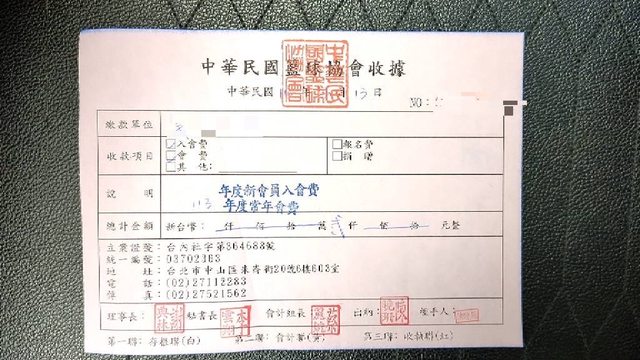 中華民國籃球協會收據
中華民國 年 月 13日
NO:
繳款單位
收款項目
☑入會費 □報名費
☑會費 □捐贈
□其他:
說明
年度新會員入會費
113 年度常年會費
總計金額 新台幣: 仟 佰 拾 萬 貳 仟 佰 拾 元整
立案證號:台內社字第364683號
統一編號:03702363
地址:台北市中山區朱崙街20號6樓603室
電話:(02)27112283
傳真:(02)27521562
理事長: 秘書長: 會計組長: 出納: 經手人:
第一聯:存根聯(白) 第二聯:會計聯(黃) 第三聯:收執聯(紅)